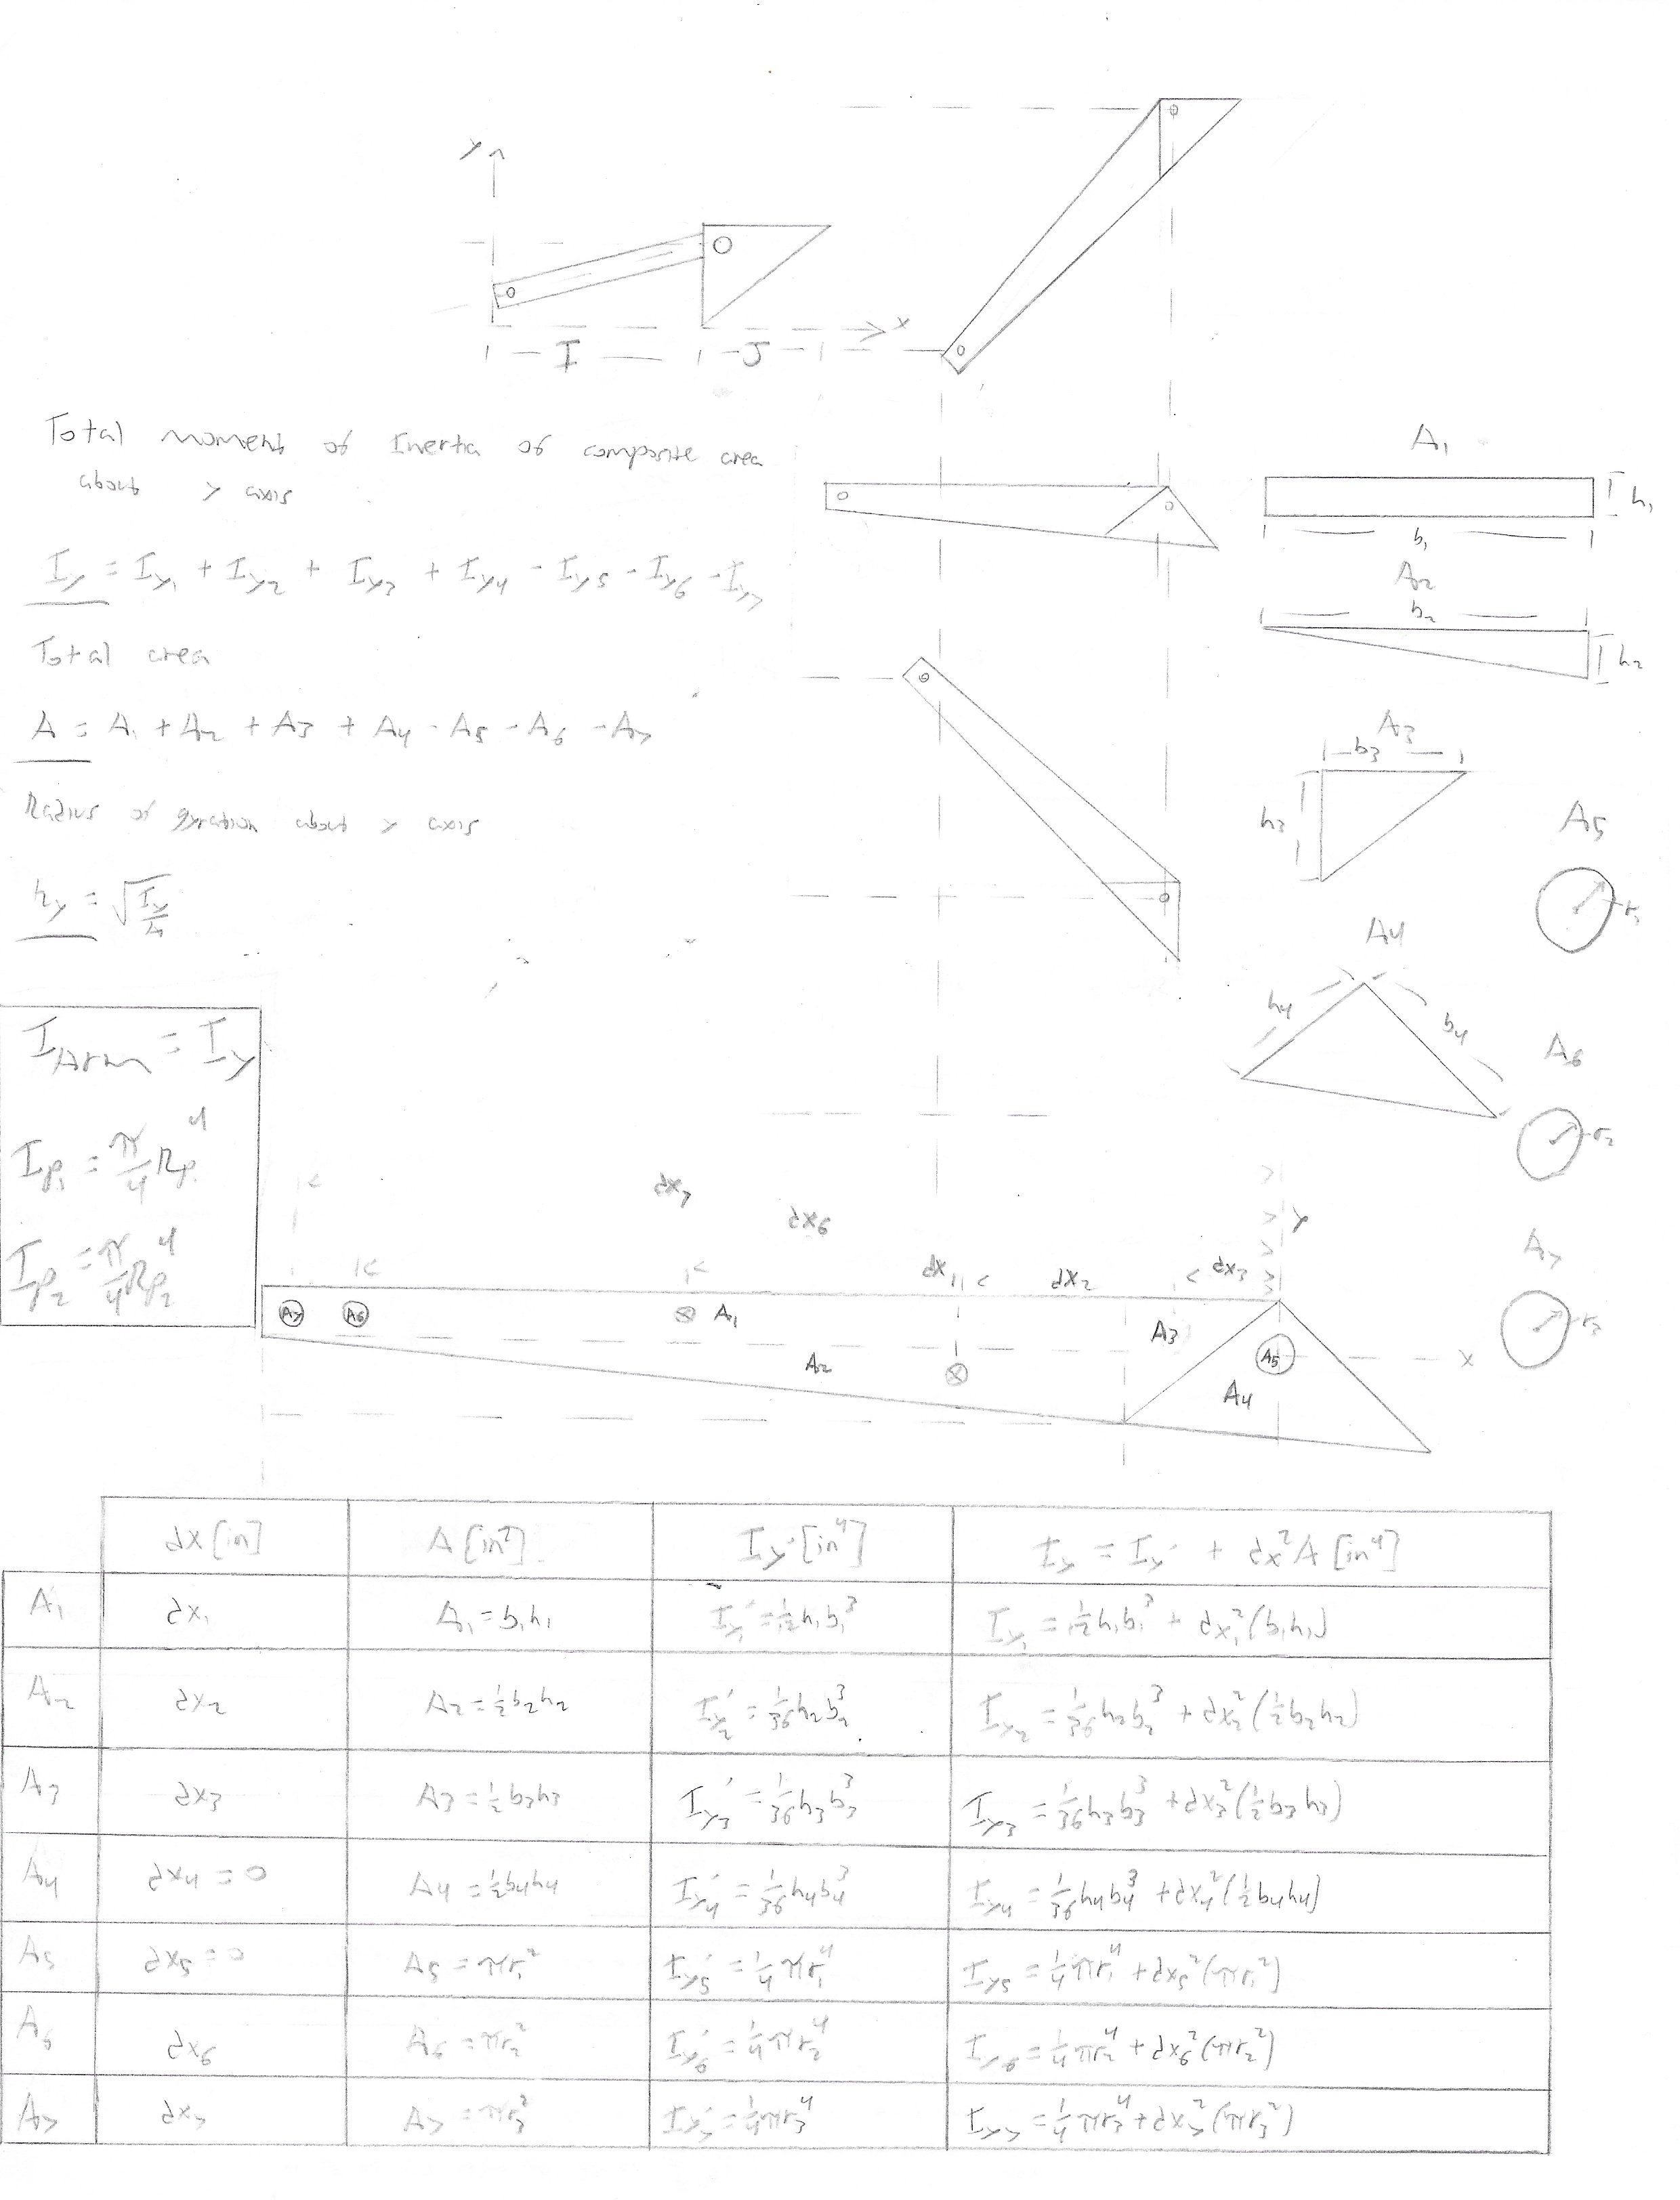 y
x
I
J
Total moment of Inertia of composite area
about y axis
Iy = Iy₁ + Iy₂ + Iy₃ + Iy₄ - Iy₅ - Iy₆ - Iy₇
Total area
A = A₁ + A₂ + A₃ + A₄ - A₅ - A₆ - A₇
Radius of gyration about y axis
ky = √(Iy/A)
I_Arm = Iy
Ip₁ = π/4 Rp₁⁴
Ip₂ = π/4 Rp₂⁴
A₁
h₁
b₁
A₂
b₂
h₂
A₃
b₃
h₃
A₅
r₁
A₄
h₄
b₄
A₆
r₂
A₇
r₃
dx₇
dx₆
dx₁
dx₂
dx₃
y
A₇
A₆
A₁
A₃
A₂
A₅
A₄
x
dx [in] A [in²] Iy' [in⁴] Iy = Iy' + dx²A [in⁴]
A₁ dx₁ A₁ = b₁h₁ Iy₁' = 1/12 h₁b₁³ Iy₁ = 1/12 h₁b₁³ + dx₁²(b₁h₁)
A₂ dx₂ A₂ = ½b₂h₂ Iy₂' = 1/36 h₂b₂³ Iy₂ = 1/36 h₂b₂³ + dx₂²(½b₂h₂)
A₃ dx₃ A₃ = ½b₃h₃ Iy₃' = 1/36 h₃b₃³ Iy₃ = 1/36 h₃b₃³ + dx₃²(½b₃h₃)
A₄ dx₄ = 0 A₄ = ½b₄h₄ Iy₄' = 1/36 h₄b₄³ Iy₄ = 1/36 h₄b₄³ + dx₄²(½b₄h₄)
A₅ dx₅ = 0 A₅ = πr₁² Iy₅' = ¼πr₁⁴ Iy₅ = ¼πr₁⁴ + dx₅²(πr₁²)
A₆ dx₆ A₆ = πr₂² Iy₆' = ¼πr₂⁴ Iy₆ = ¼πr₂⁴ + dx₆²(πr₂²)
A₇ dx₇ A₇ = πr₃² Iy₇' = ¼πr₃⁴ Iy₇ = ¼πr₃⁴ + dx₇²(πr₃²)